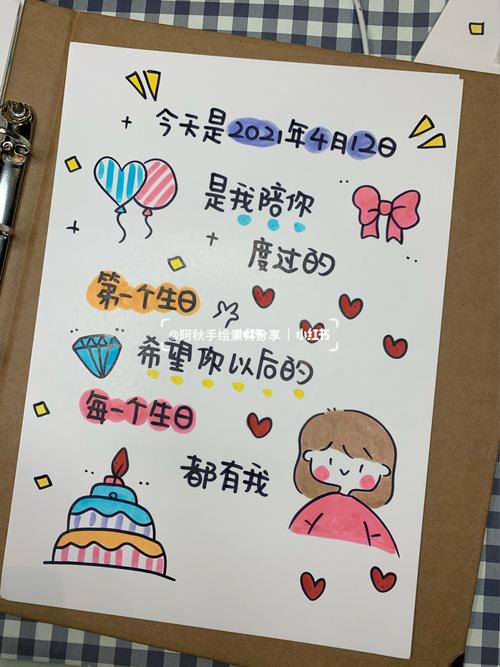 今天是2021年4月12日
是我陪你
度过的
第一个生日
@阿秋手绘素材分享 | 小红书
希望你以后的
每一个生日
都有我